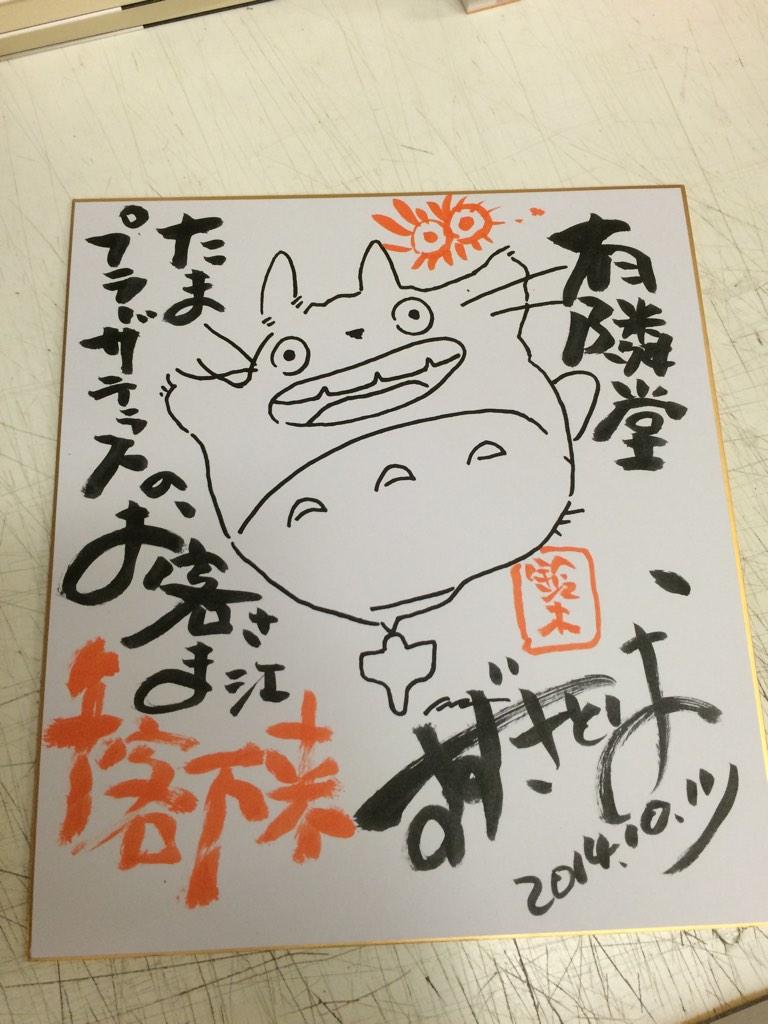 有隣堂
たま
プラーザテラスの、
お客さま江
千客万来
鈴木
すずきとしお
2014.10.11